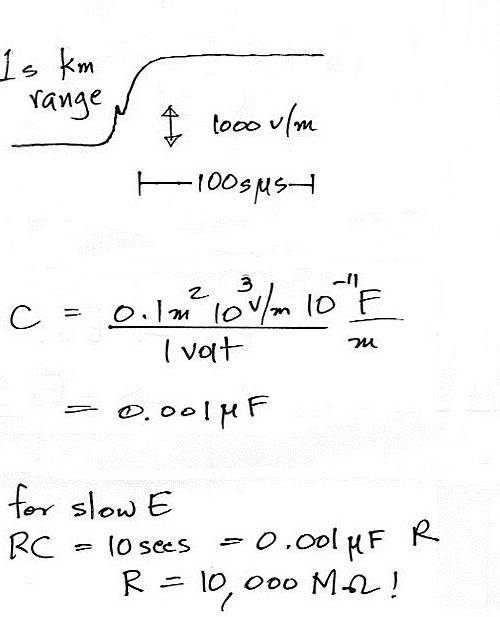 1s km
range
1000 v/m
100s μs
C = 0.1m² 10³ V/m 10⁻¹¹ F/m
1 volt
= 0.001 μF
for slow E
RC = 10 secs = 0.001 μF R
R = 10,000 MΩ !